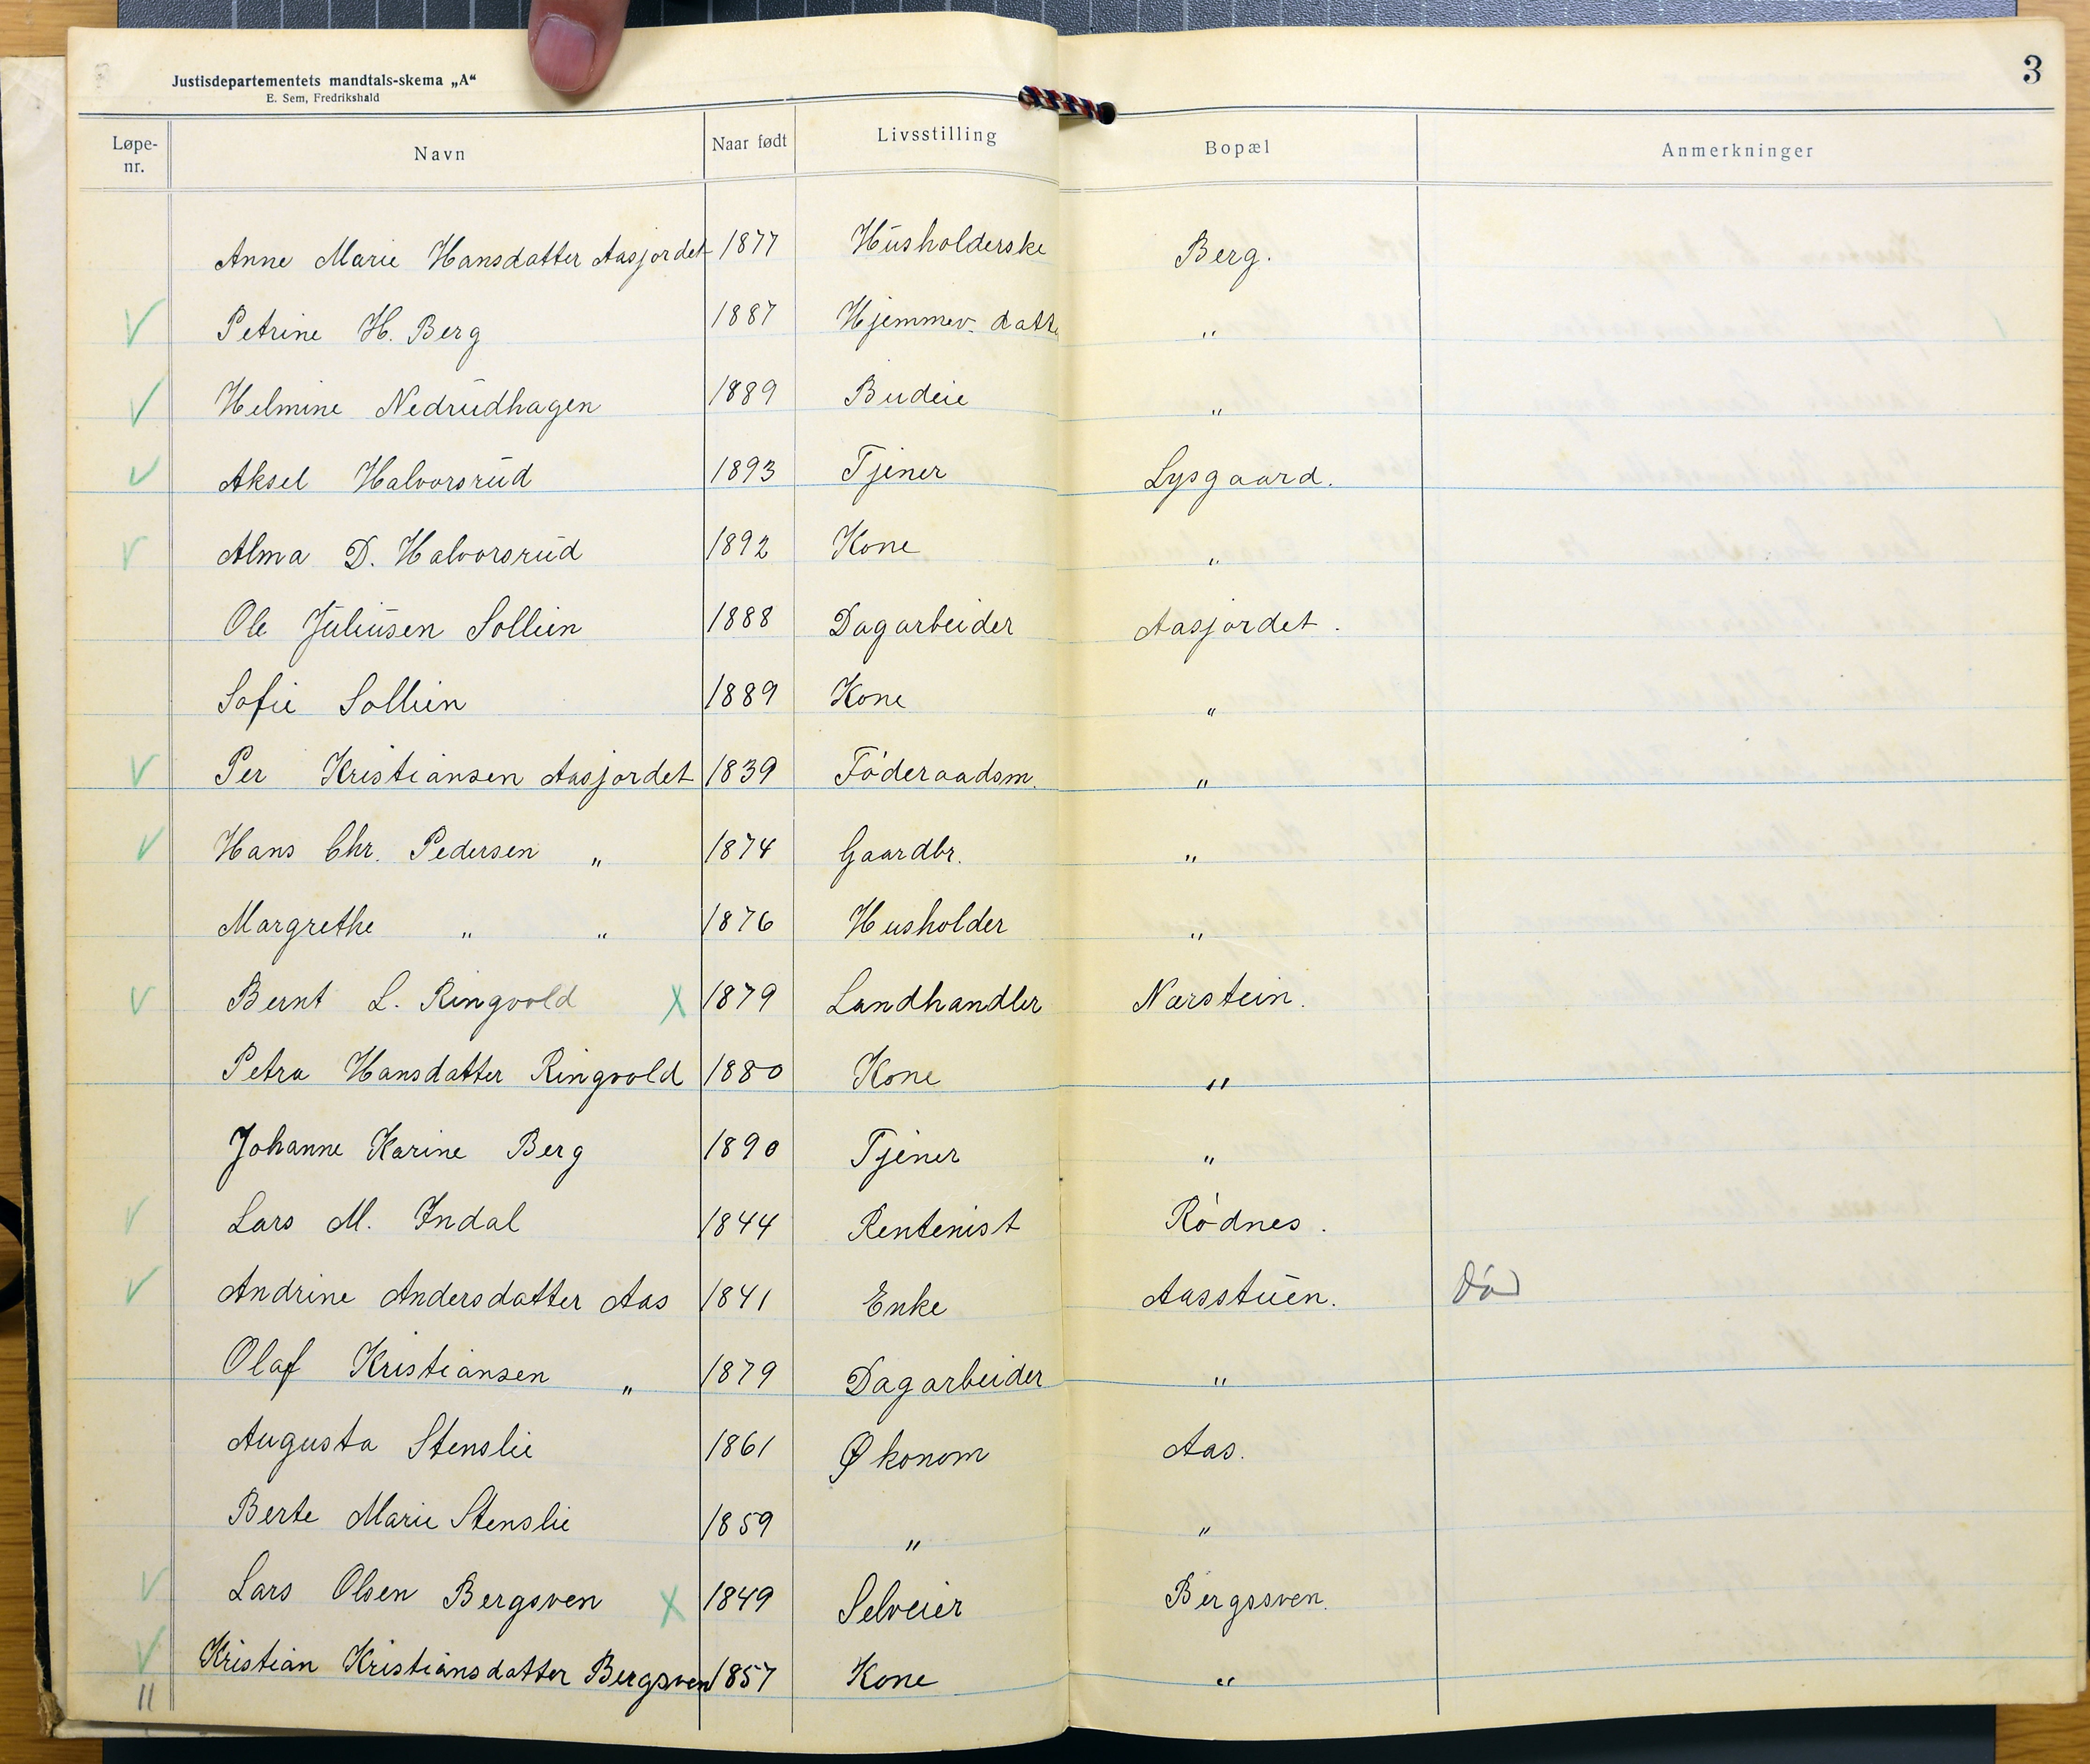 3
Justisdepartementets mandtals-skema „A“
E. Sem, Fredrikshald
Løpe-nr. Navn Naar født Livsstilling Bopæl Anmerkninger
Anne Marie Hansdatter Aasjordet 1877 Husholderske Berg.
V Petrine H. Berg 1887 Hjemmev. datte „
V Helmine Nedrudhagen 1889 Budeie „
V Aksel Halvorsrud 1893 Tjener Lysgaard.
V Alma D. Halvorsrud 1892 Kone „
Ole Juliusen Sollien 1888 Dagarbeider Aasjordet.
Sofie Sollien 1889 Kone „
V Per Kristiansen Aasjordet 1839 Föderaadsm. „
V Hans Chr. Pedersen „ 1874 Gaardbr. „
Margrethe „ „ 1876 Husholder „
V Bernt L. Ringvold X 1879 Landhandler Nærstein.
Petra Hansdatter Ringvold 1880 Kone „
Johanne Karine Berg 1890 Tjener „
V Lars M. Indal 1844 Rentenist Ródnes.
V Andrine Andersdatter Aas 1841 Enke Aasstuen. Död
Olaf Kristiansen „ 1879 Dagarbeider „
Augusta Stenslie 1861 Økonom Aas.
Berte Marie Stenslie 1859 „ „
V Lars Olsen Bergsven X 1849 Selveier Bergssven.
V Kristian Kristiansdatter Bergsven 1857 Kone „
11